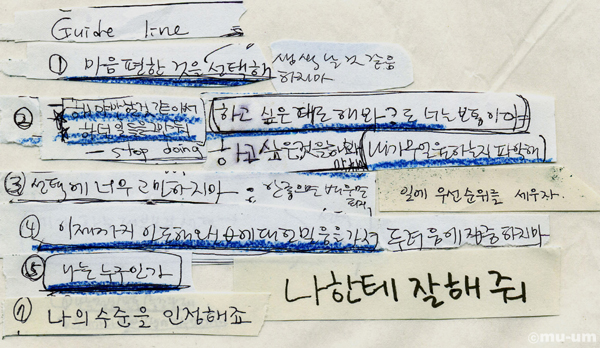 Guide line
① 마음 편한 것은 선택해
생색 날 것 같음
하지마
②
하던 일들을 멈춰
stop doing
하고 싶은 대로 해와 그로 너는 보통이다
하고 싶은것을 해봐
내가 무얼 원하는지 파악해
③ 선택에 너무 고민하지마
일에 우선순위를 세우자.
④ 이제까지 인도해와서 대한 믿음을 가져 두려움에 집중하지마
⑤ 나는 누구인가
나한테 잘해 줘
⑦ 나의 수준을 인정해죠
©mu-um